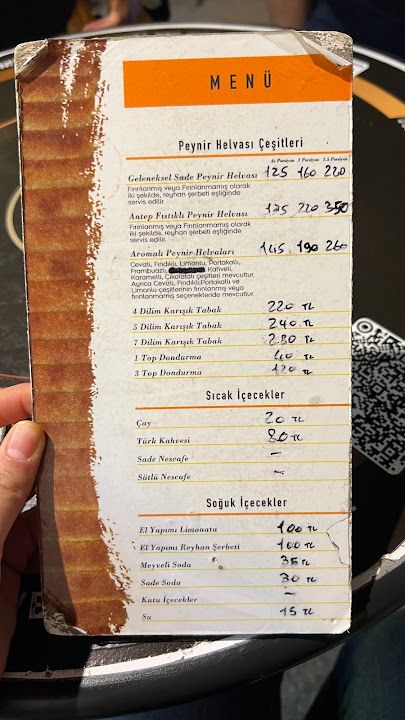 MENÜ
Peynir Helvası Çeşitleri
Az Porsiyon 1 Porsiyon 1.5 Porsiyon
Geleneksel Sade Peynir Helvası 125 160 220
Fırınlanmış veya Fırınlanmamış olarak
iki şekilde, reyhan şerbeti eşliğinde
servis edilir.
Antep Fıstıklı Peynir Helvası 175 220 350
Fırınlanmış veya Fırınlanmamış olarak
iki şekilde, reyhan şerbeti eşliğinde
servis edilir.
Aromalı Peynir Helvaları 145 190 260
Cevizli, Fındıklı, Limonlu, Portakallı,
Frambuazlı, Kahveli,
Karamelli, Çikolatalı çeşitleri mevcuttur.
Ayrıca Cevizli, Fındıklı,Portakallı ve
Limonlu çeşitlerinin fırınlanmış veya
fırınlanmamış seçenekleride mevcuttur.
4 Dilim Karışık Tabak 220 TL
5 Dilim Karışık Tabak 240 TL
7 Dilim Karışık Tabak 280 TL
1 Top Dondurma 40 TL
3 Top Dondurma 120 TL
Sıcak İçecekler
Çay 20 TL
Türk Kahvesi 80 TL
Sade Nescafe -
Sütlü Nescafe -
Soğuk İçecekler
El Yapımı Limonata 100 TL
El Yapımı Reyhan Şerbeti 100 TL
Meyveli Soda 35 TL
Sade Soda 30 TL
Kutu İçecekler -
Su 15 TL